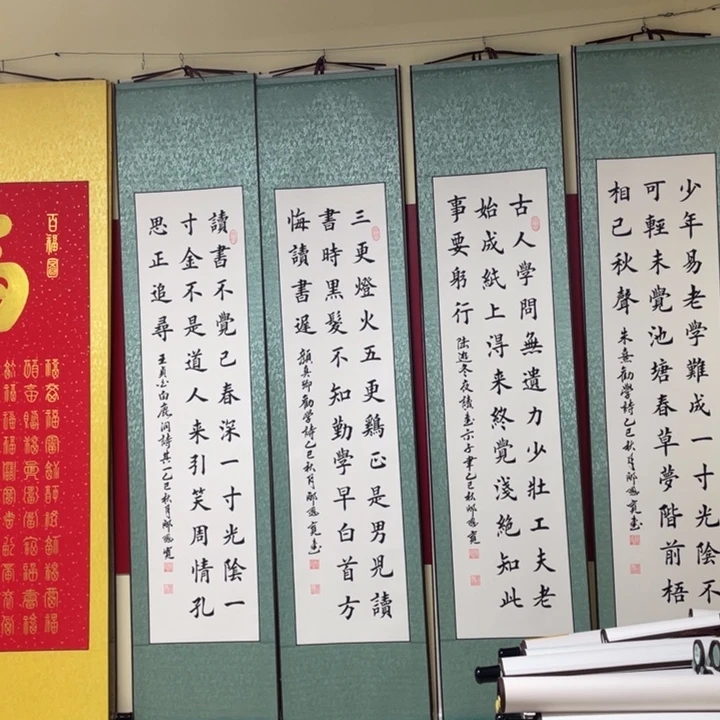 少年易老學難成一寸光陰不
可輕未覺池塘春草夢階前梧
相已秋聲
朱熹勸學詩乙巳秋月
古人學問無遺力少壯工夫老
始成紙上得来終覺淺絕知此
事要躬行
陸游冬夜讀書示子聿乙巳秋
三更燈火五更鷄正是男兒讀
書時黑髮不知勤學早白首方
悔讀書遲
顏真卿勸學詩乙巳秋月
讀書不覺已春深一寸光陰一
寸金不是道人来引笑周情孔
思正追尋
王貞白白鹿洞詩其一乙巳秋月
百福圖